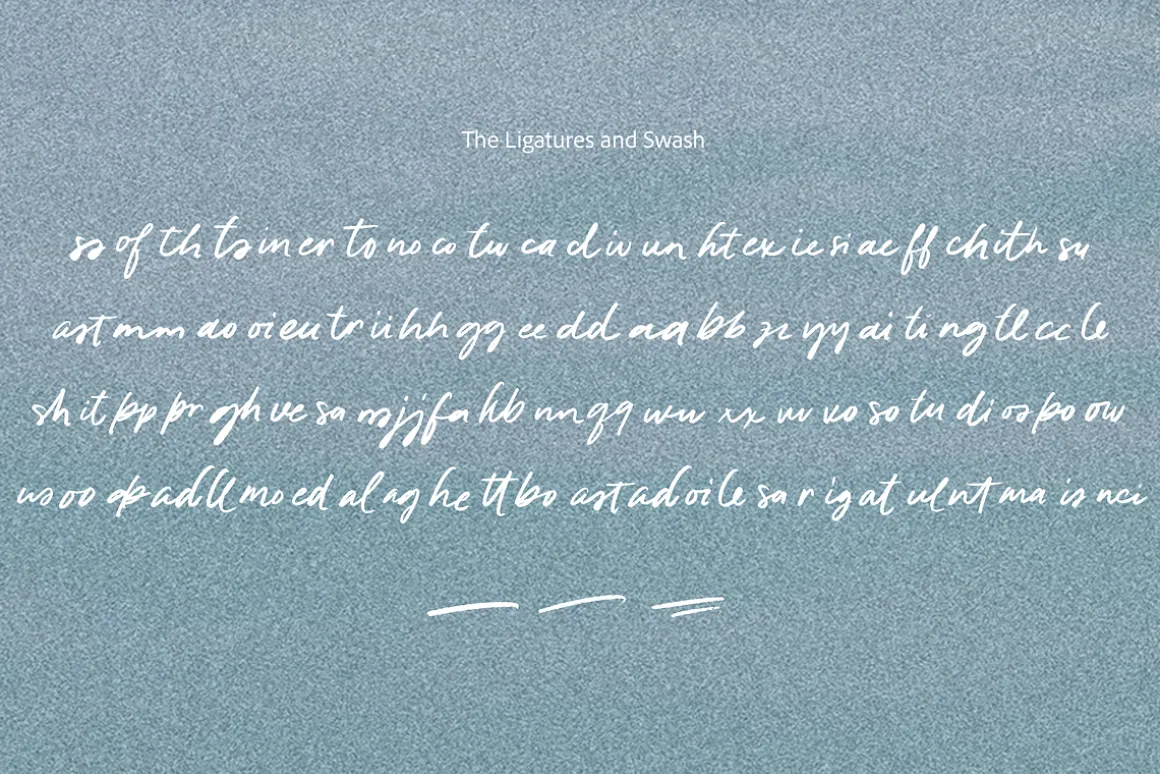 The Ligatures and Swash
ss of th ts in er to no co tu ca d iv un ht ex ie ri ae ff ch ith su
ast mm ao oi eu tr ii hh gg ee dd aa bb zz yy ai ti ng tl cc le
sh it pp pr gh ve sa jj fa nn qq ww xx uv vo so tu di os po ow
us oo ad ll mo ed al ag he tt bo ast ad oi le sa r ig at ul nt ma is nci